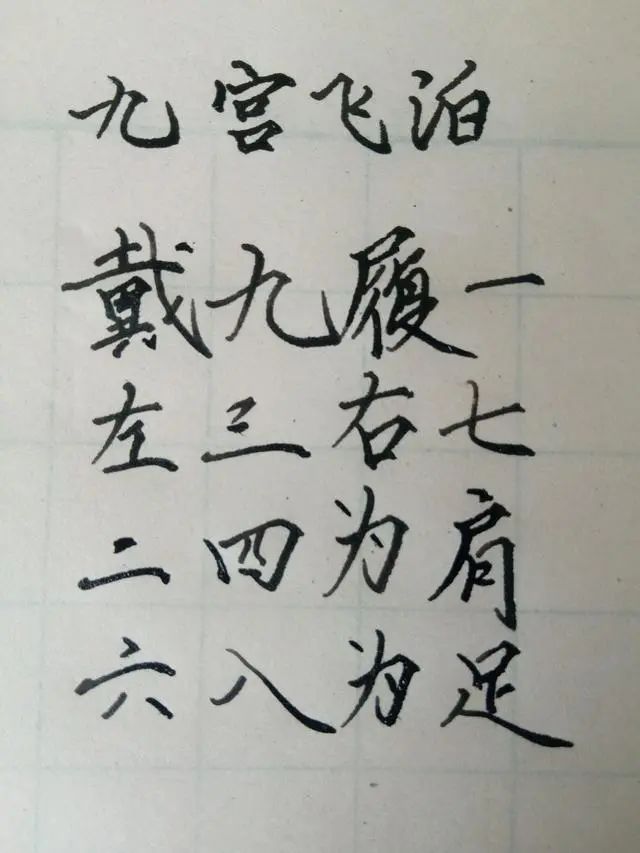 九宫飞泊
戴九履一
左三右七
二四为肩
六八为足